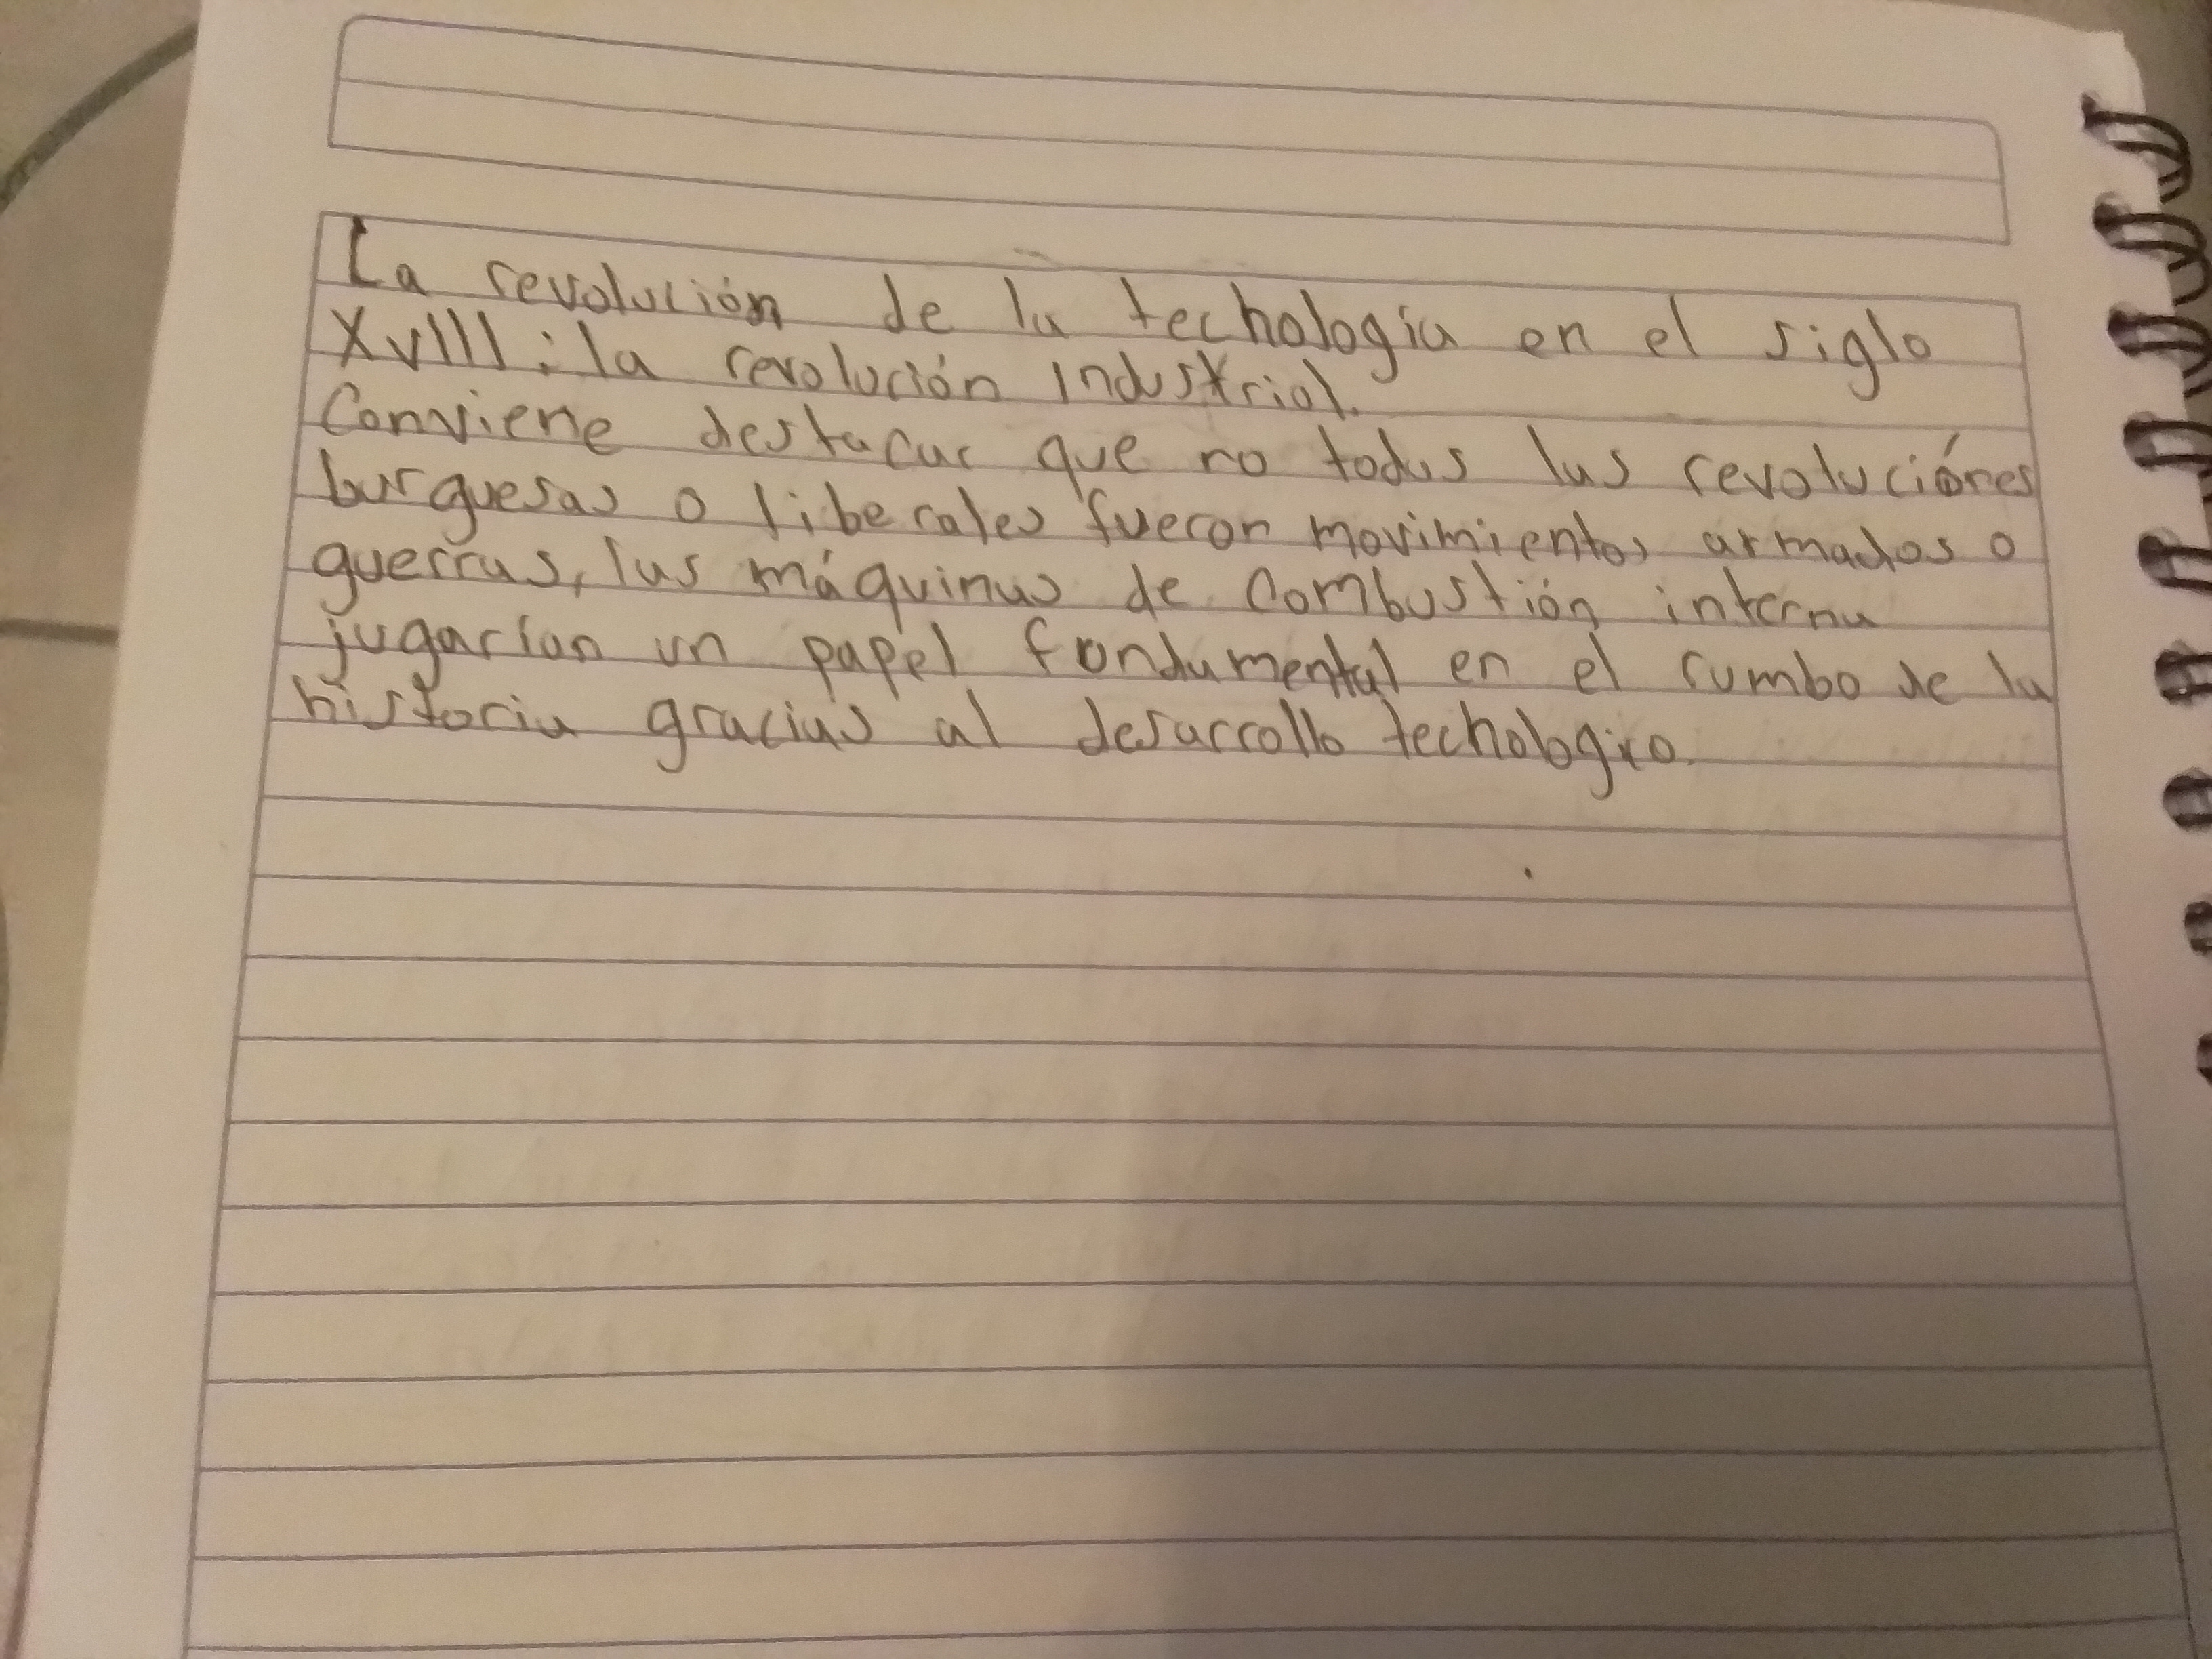 La revolución de la techología en el siglo
XVIII: la revolución industrial.
Conviene destacar que no todas las revoluciónes
burguesas o liberales fueron movimientos armados o
guerras, las máquinas de combustión interna
jugarían un papel fundamental en el rumbo de la
historia gracias al desarrollo techologico.